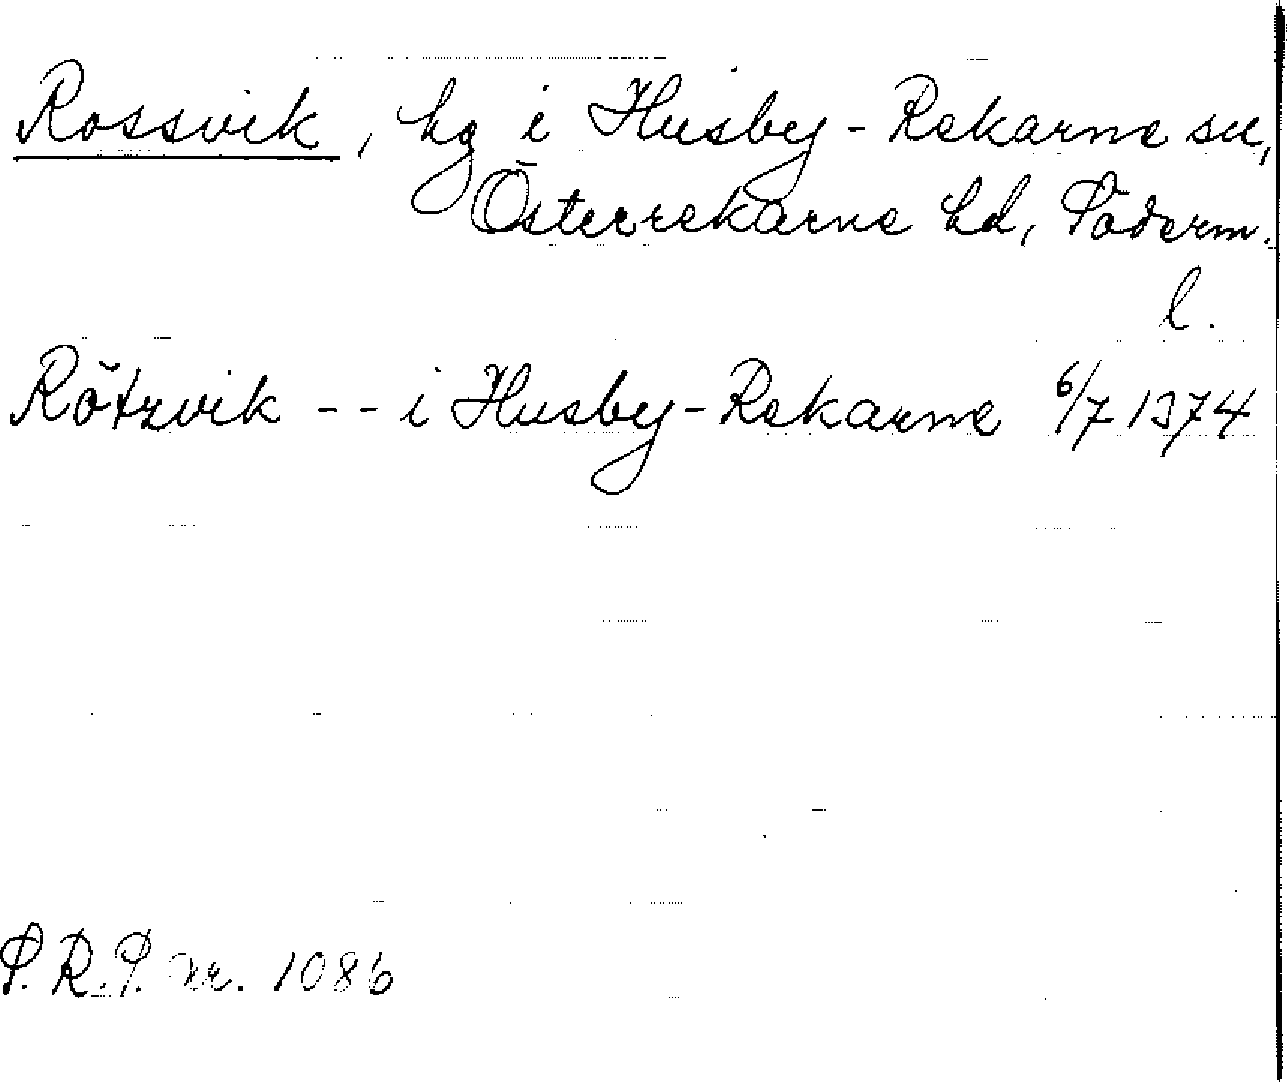 Rossvik, hg i Husby-Rekarne sn,
Österrekarne hd, Söderm.
l.
Rötzvik -- i Husby-Rekarne 6/7 1374
S.R.P. nr. 1086